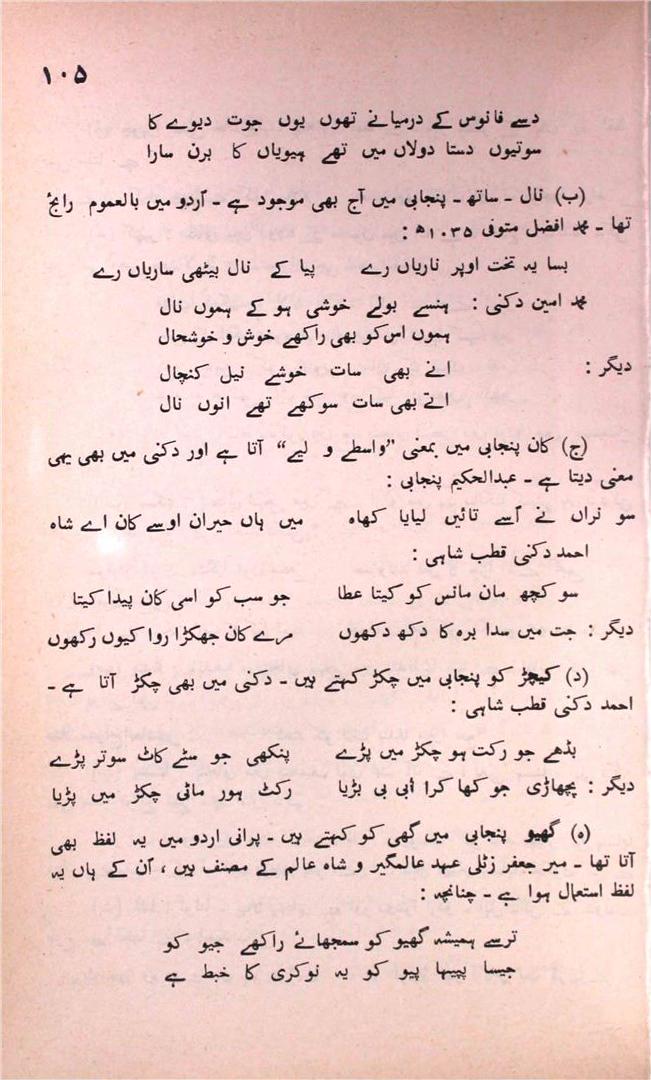 ۱۰۵
دسے فانوس کے درمیانے تھوں یوں جوت دیوے کا
سوتیوں دستا دولاں میں تھے ہیویاں کا برن سارا
(ب) نال ۔ ساتھ ۔ پنجابی میں آج بھی موجود ہے ۔ اُردو میں بالعموم رایج
تھا ۔ محمد افضل متوفی ۱۰۳۵ھ :
بسا یہ تخت اوپر ناریاں رے پیا کے نال بیٹھی ساریاں رے
محمد امین دکنی : ہنسے بولے خوشی ہو کے ہموں نال
ہموں اس کو بھی راکھے خوش و خوشحال
دیگر : انے بھی سات خوشے نیل کنچال
اتے بھی سات سوکھے تھے انوں نال
(ج) کان پنجابی میں بمعنی ”واسطے و لیے“ آتا ہے اور دکنی میں بھی یہی
معنی دیتا ہے ۔ عبدالحکیم پنجابی :
سو نراں نے اُسے تائیں لیایا کھاہ میں ہاں حیران اوسے کان اے شاہ
احمد دکنی قطب شاہی :
سو کچھ مان مانس کو کیتا عطا جو سب کو اسی کان پیدا کیتا
دیگر : جت میں سدا برہ کا دکھ دکھوں مرے کان جھکڑا روا کیوں رکھوں
(د) کیچڑ کو پنجابی میں چکڑ کہتے ہیں ۔ دکنی میں بھی چکڑ آتا ہے ۔
احمد دکنی قطب شاہی :
بڈھے جو رکت ہو چکڑ میں پڑے پنکھی جو سٹے کاٹ سوتر پڑے
دیگر : پچھاڑی جو کھا کرا اُبی بی بڑیا رکٹ ہور ماٹی چکڑ میں پڑیا
(ہ) گھیو پنجابی میں گھی کو کہتے ہیں ۔ پرانی اردو میں یہ لفظ بھی
آتا تھا ۔ میر جعفر زٹلی عہد عالمگیر و شاہ عالم کے مصنف ہیں ، اُن کے ہاں یہ
لفظ استعمال ہوا ہے ۔ چنانچہ :
ترسے ہمیشہ گھیو کو سمجھائے راکھے جیو کو
جیسا پپیہا پیو کو یہ نوکری کا خبط ہے